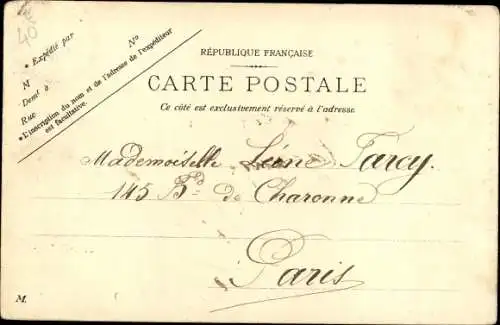 40
* Expédié par
N°
M
Demt à
Rue
* L'inscription du nom et de l'adresse de l'expéditeur
est facultative.
RÉPUBLIQUE FRANÇAISE
CARTE POSTALE
Ce côté est exclusivement réservé à l'adresse
Mademoiselle Léone Tarcy.
145 Bd de Charonne
Paris
M.